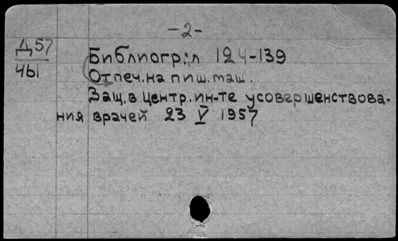 -2-
Д57
ЧЫ
Библиогр: л 124-139
Отпеч. на пиш. маш.
Защ. в Центр. ин-те усовершенствова-
ния врачей 23 V 1957